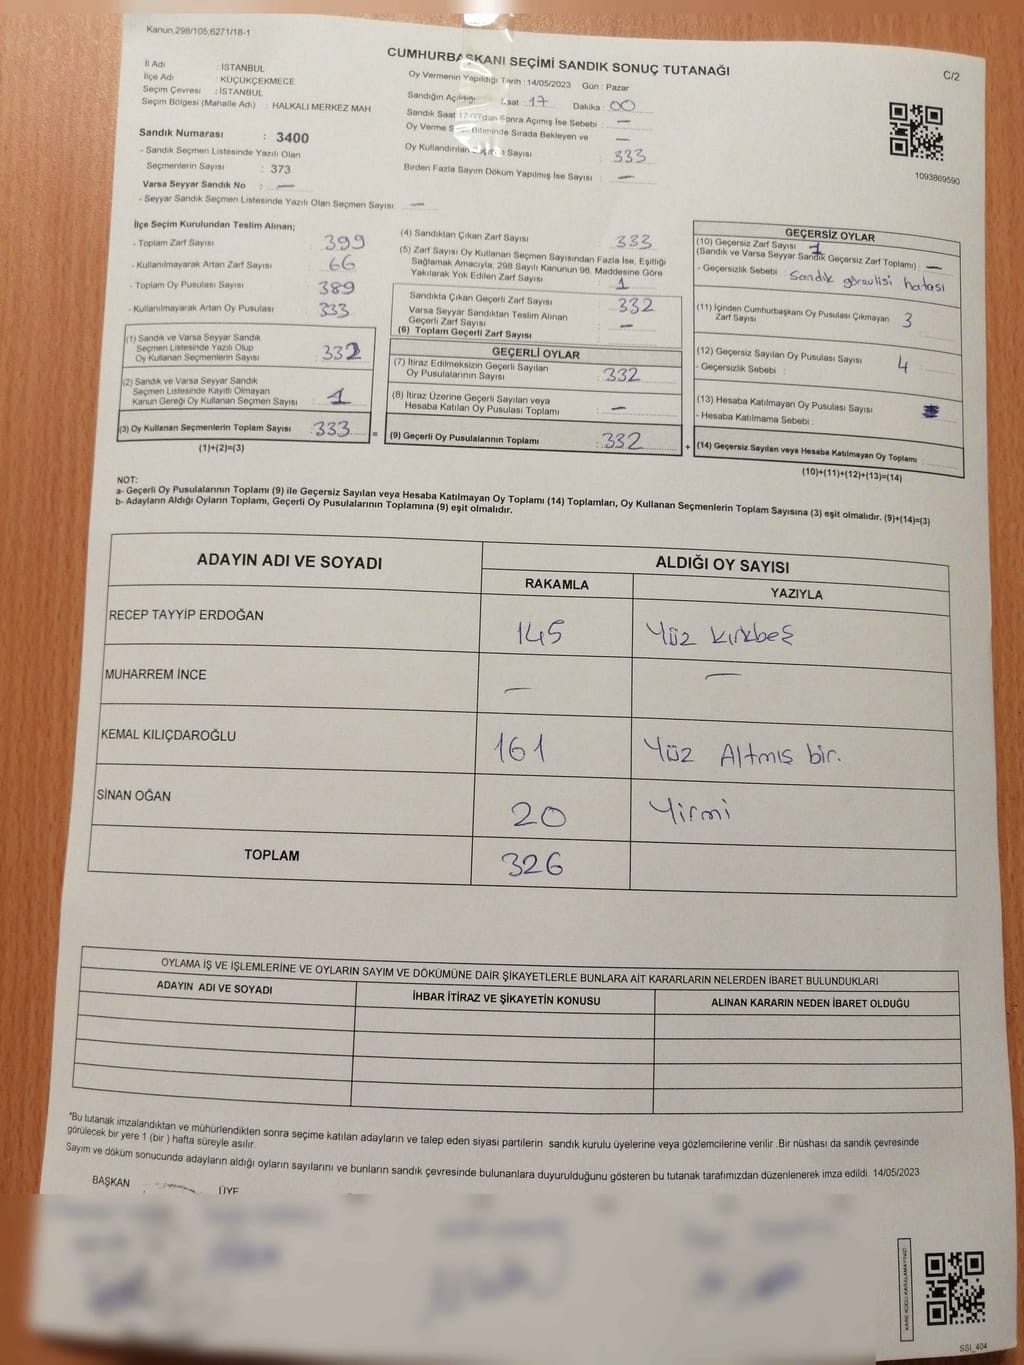 Kanun,298/105,6271/18-1
CUMHURBAŞKANI SEÇİMİ SANDIK SONUÇ TUTANAĞI
C/2
İl Adı : İSTANBUL
İlçe Adı : KÜÇÜKÇEKMECE
Seçim Çevresi : İSTANBUL
Seçim Bölgesi (Mahalle Adı) : HALKALI MERKEZ MAH.
Sandık Numarası : 3400
- Sandık Seçmen Listesinde Yazılı Olan
Seçmenlerin Sayısı : 373
Varsa Seyyar Sandık No : —
- Seyyar Sandık Seçmen Listesinde Yazılı Olan Seçmen Sayısı —
Oy Vermenin Yapıldığı Tarih : 14/05/2023 Gün : Pazar
Sandığın Açıldığı Saat 17 Dakika : 00
Sandık Saat 17:00'dan Sonra Açımış İse Sebebi : —
Oy Verme Bitiminde Sırada Bekleyen ve —
Oy Kullandırılan Sayısı : 333
Birden Fazla Sayım Döküm Yapılmış İse Sayısı : —
1093869590
İlçe Seçim Kurulundan Teslim Alınan;
- Toplam Zarf Sayısı : 399
- Kullanılmayarak Artan Zarf Sayısı : 66
- Toplam Oy Pusulası Sayısı : 389
- Kullanılmayarak Artan Oy Pusulası : 333
(1) Sandık ve Varsa Seyyar Sandık
Seçmen Listesinde Yazılı Olup
Oy Kullanan Seçmenlerin Sayısı : 332
(2) Sandık ve Varsa Seyyar Sandık
Seçmen Listesinde Kayıtlı Olmayan
Kanun Gereği Oy Kullanan Seçmen Sayısı : 1
(3) Oy Kullanan Seçmenlerin Toplam Sayısı : 333 =
(1)+(2)=(3)
(4) Sandıktan Çıkan Zarf Sayısı : 333
(5) Zarf Sayısı Oy Kullanan Seçmen Sayısından Fazla İse, Eşitliği
Sağlamak Amacıyla, 298 Sayılı Kanunun 98. Maddesine Göre
Yakılarak Yok Edilen Zarf Sayısı : 1
Sandıkta Çıkan Geçerli Zarf Sayısı : 332
Varsa Seyyar Sandıktan Teslim Alınan
Geçerli Zarf Sayısı : —
(6) Toplam Geçerli Zarf Sayısı
GEÇERLİ OYLAR
(7) İtiraz Edilmeksizin Geçerli Sayılan
Oy Pusulalarının Sayısı : 332
(8) İtiraz Üzerine Geçerli Sayılan veya
Hesaba Katılan Oy Pusulası Toplamı : —
(9) Geçerli Oy Pusulalarının Toplamı : 332 +
GEÇERSİZ OYLAR
(10) Geçersiz Zarf Sayısı 1
(Sandık ve Varsa Seyyar Sandık Geçersiz Zarf Toplamı) : —
- Geçersizlik Sebebi : Sandık görevlisi hatası
(11) İçinden Cumhurbaşkanı Oy Pusulası Çıkmayan
Zarf Sayısı : 3
(12) Geçersiz Sayılan Oy Pusulası Sayısı : 4
- Geçersizlik Sebebi :
(13) Hesaba Katılmayan Oy Pusulası Sayısı
- Hesaba Katılmama Sebebi :
(14) Geçersiz Sayılan veya Hesaba Katılmayan Oy Toplamı :
(10)+(11)+(12)+(13)=(14)
NOT:
a- Geçerli Oy Pusulalarının Toplamı (9) ile Geçersiz Sayılan veya Hesaba Katılmayan Oy Toplamı (14) Toplamları, Oy Kullanan Seçmenlerin Toplam Sayısına (3) eşit olmalıdır. (9)+(14)=(3)
b- Adayların Aldığı Oyların Toplamı, Geçerli Oy Pusulalarının Toplamına (9) eşit olmalıdır.
ADAYIN ADI VE SOYADI ALDIĞI OY SAYISI
RAKAMLA YAZIYLA
RECEP TAYYİP ERDOĞAN 145 Yüz kırkbeş
MUHARREM İNCE — —
KEMAL KILIÇDAROĞLU 161 Yüz Altmış bir.
SİNAN OĞAN 20 Yirmi
TOPLAM 326
OYLAMA İŞ VE İŞLEMLERİNE VE OYLARIN SAYIM VE DÖKÜMÜNE DAİR ŞİKAYETLERLE BUNLARA AİT KARARLARIN NELERDEN İBARET BULUNDUKLARI
ADAYIN ADI VE SOYADI İHBAR İTİRAZ VE ŞİKAYETİN KONUSU ALINAN KARARIN NEDEN İBARET OLDUĞU
*Bu tutanak imzalandıktan ve mühürlendikten sonra seçime katılan adayların ve talep eden siyasi partilerin sandık kurulu üyelerine veya gözlemcilerine verilir .Bir nüshası da sandık çevresinde
görülecek bir yere 1 (bir ) hafta süreyle asılır.
Sayım ve döküm sonucunda adayların aldığı oyların sayılarını ve bunların sandık çevresinde bulunanlara duyurulduğunu gösteren bu tutanak tarafımızdan düzenlenerek imza edildi. 14/05/2023
BAŞKAN ÜYE
KARE KODU KARALAMAYINIZ!
SSI_404